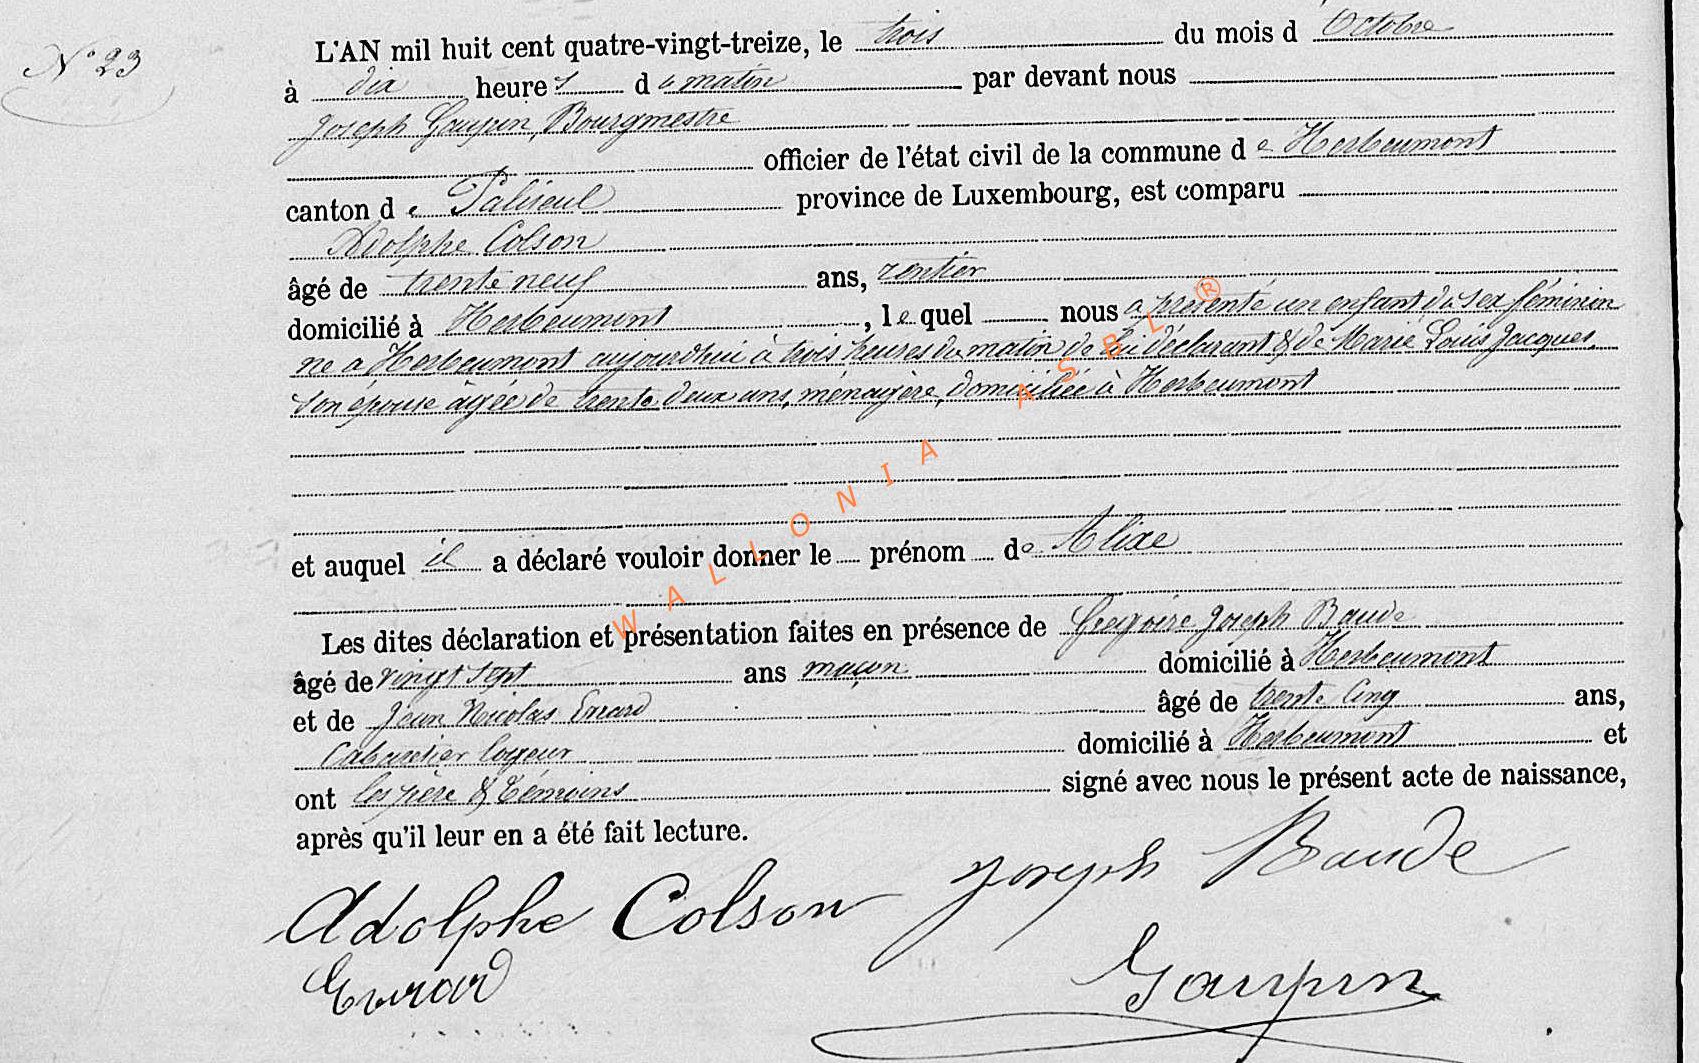 N° 23
L'AN mil huit cent quatre-vingt-treize, le trois du mois d Octobre
à dix heure s d u matin par devant nous
Joseph Gaupin, Bourgmestre
officier de l'état civil de la commune d e Herbeumont
canton d e Paliseul province de Luxembourg, est comparu
Adolphe Colson
âgé de trente neuf ans, rentier
domicilié à Herbeumont, le quel nous a présenté un enfant du sex féminin
né a Herbeumont aujourdhui à trois heures du matin de lui déclarant & de Marie Louis Jacques,
son épouse âgée de trente deux ans, ménagère, domiciliée à Herbeumont
et auquel il a déclaré vouloir donner le prénom de Alixe
Les dites déclaration et présentation faites en présence de Gregoire Joseph Baude
âgé de vingt sept ans maçon domicilié à Herbeumont
et de Jean Nicolas Evrard âgé de trente cinq ans,
Cabaretier domicilié à Herbeumont et
ont les père & témoins signé avec nous le présent acte de naissance,
après qu'il leur en a été fait lecture.
Adolphe Colson Joseph Baude
Evrard Gaupin
WALLONIA ASBL ®